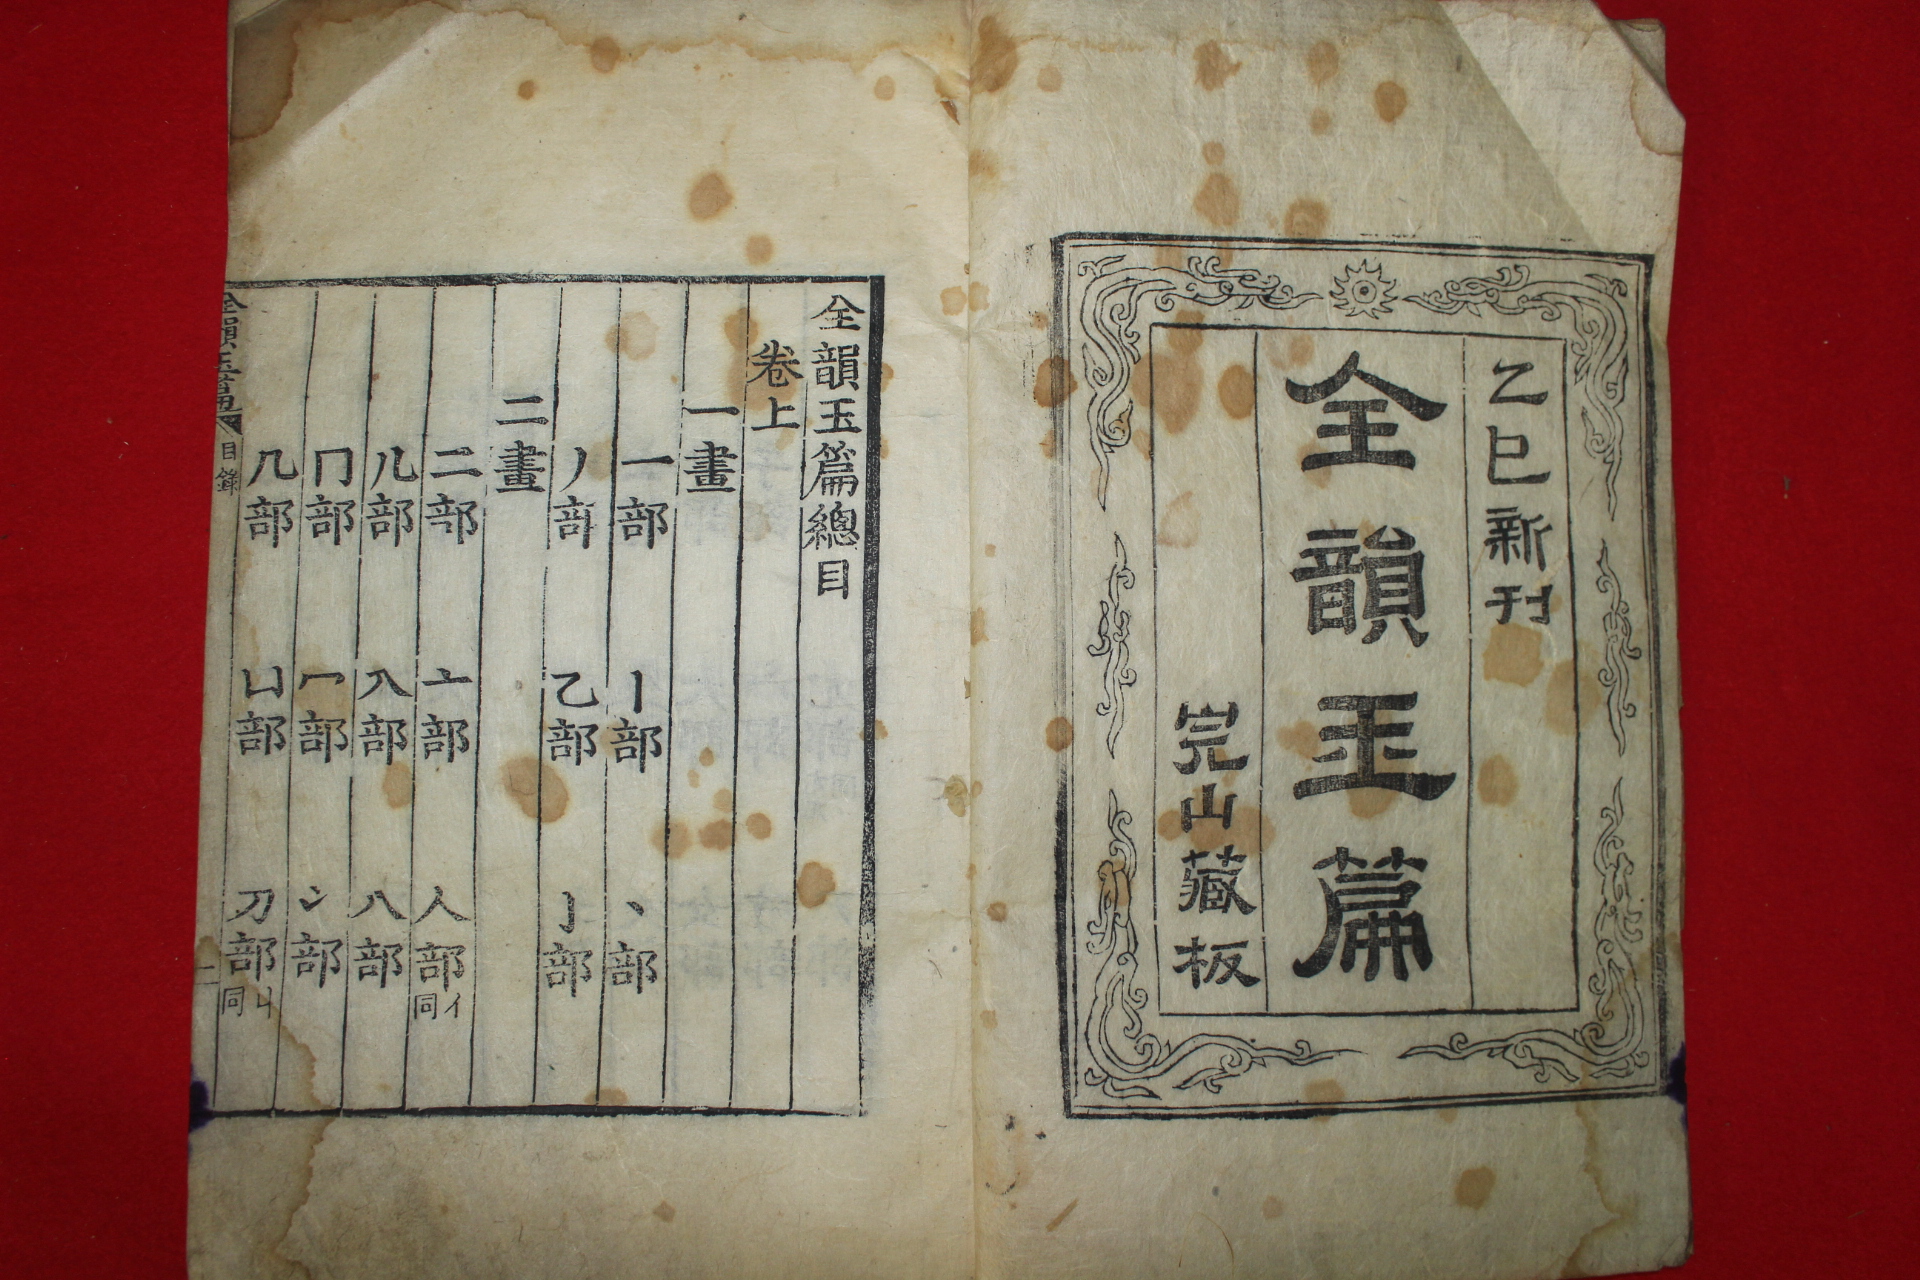 乙巳新刊
全韻玉篇
完山藏板
全韻玉篇總目
卷上
一畫
一部 丨部 丶部
丿部 乙部 亅部
二畫
二部 亠部 人部 亻同
儿部 入部 八部
冂部 冖部 冫部
几部 凵部 刀部 刂同
全韻玉篇 目錄 一